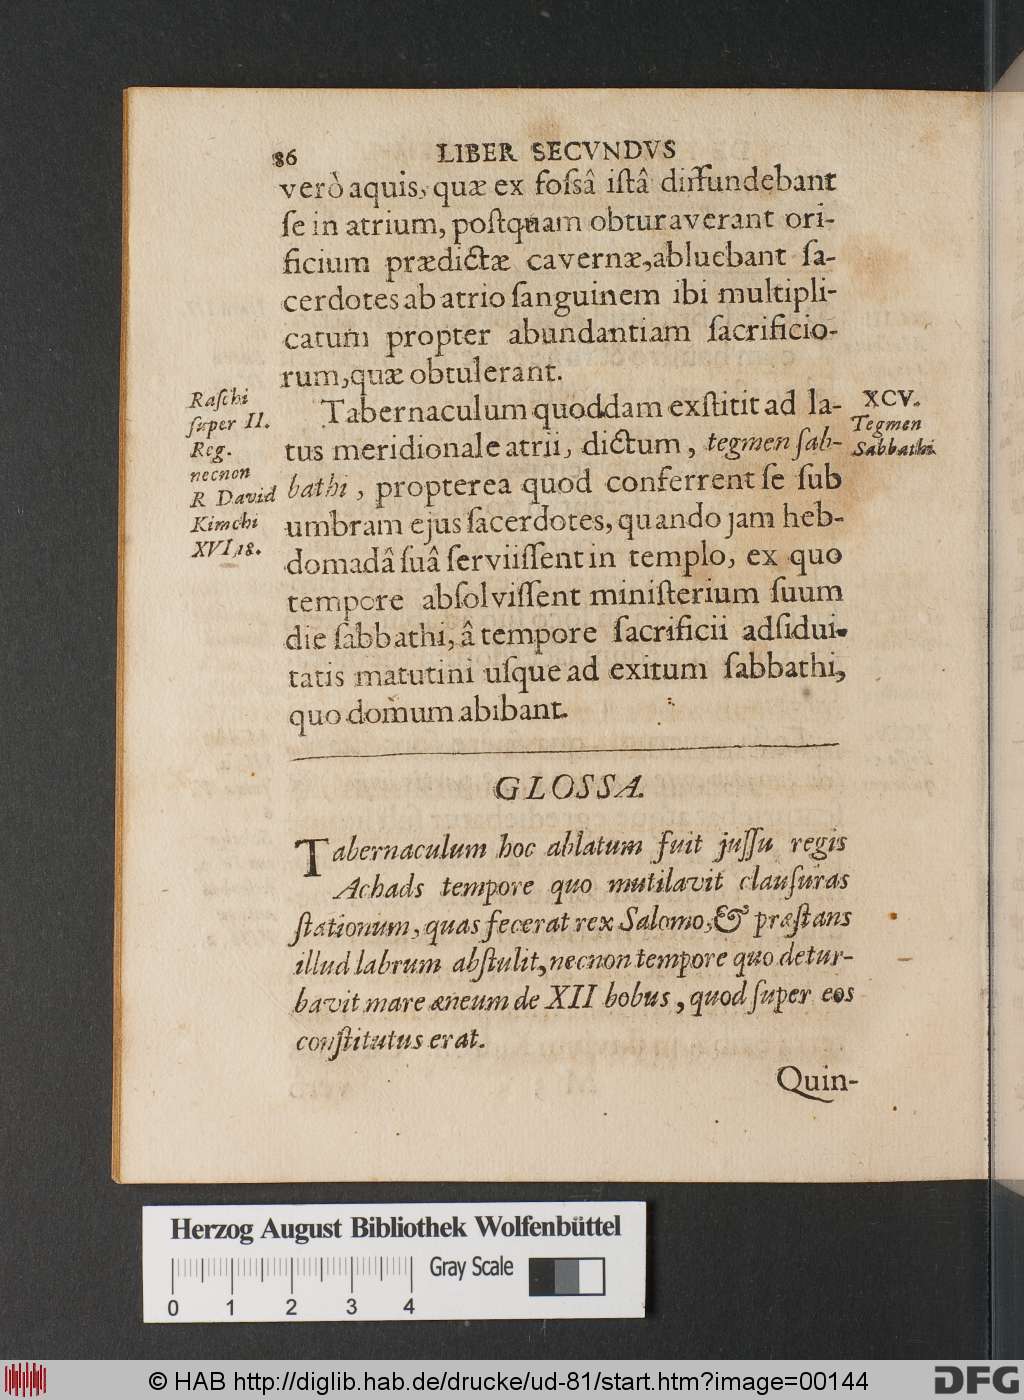 86 LIBER SECVNDVS
verò aquis, quæ ex foſsâ iſtâ diffundebant
ſe in atrium, poſtquam obturaverant ori-
ficium prædictæ cavernæ, abluebant ſa-
cerdotes ab atrio ſanguinem ibi multipli-
catum propter abundantiam ſacrificio-
rum, quæ obtulerant.
Tabernaculum quoddam exſtitit ad la-
tus meridionale atrii, dictum, tegmen ſab-
bathi, propterea quod conferrent ſe ſub
umbram ejus ſacerdotes, quando jam heb-
domadâ ſuâ ſerviiſſent in templo, ex quo
tempore abſolviſſent miniſterium ſuum
die ſabbathi, â tempore ſacrificii adſidui-
tatis matutini uſque ad exitum ſabbathi,
quo domum abibant.
Raſchi
ſuper II.
Reg.
necnon
R David
Kimchi
XVI, 18.
XCV.
Tegmen
Sabbathi.
GLOSSA.
Tabernaculum hoc ablatum fuit juſſu regis
Achads tempore quo mutilavit clauſuras
ſtationum, quas fecerat rex Salomo, & præſtans
illud labrum abſtulit, necnon tempore quo detur-
bavit mare æneum de XII bobus, quod ſuper eos
conſtitutus erat.
Quin-
Herzog August Bibliothek Wolfenbüttel
Gray Scale
0 1 2 3 4
© HAB http://diglib.hab.de/drucke/ud-81/start.htm?image=00144
DFG